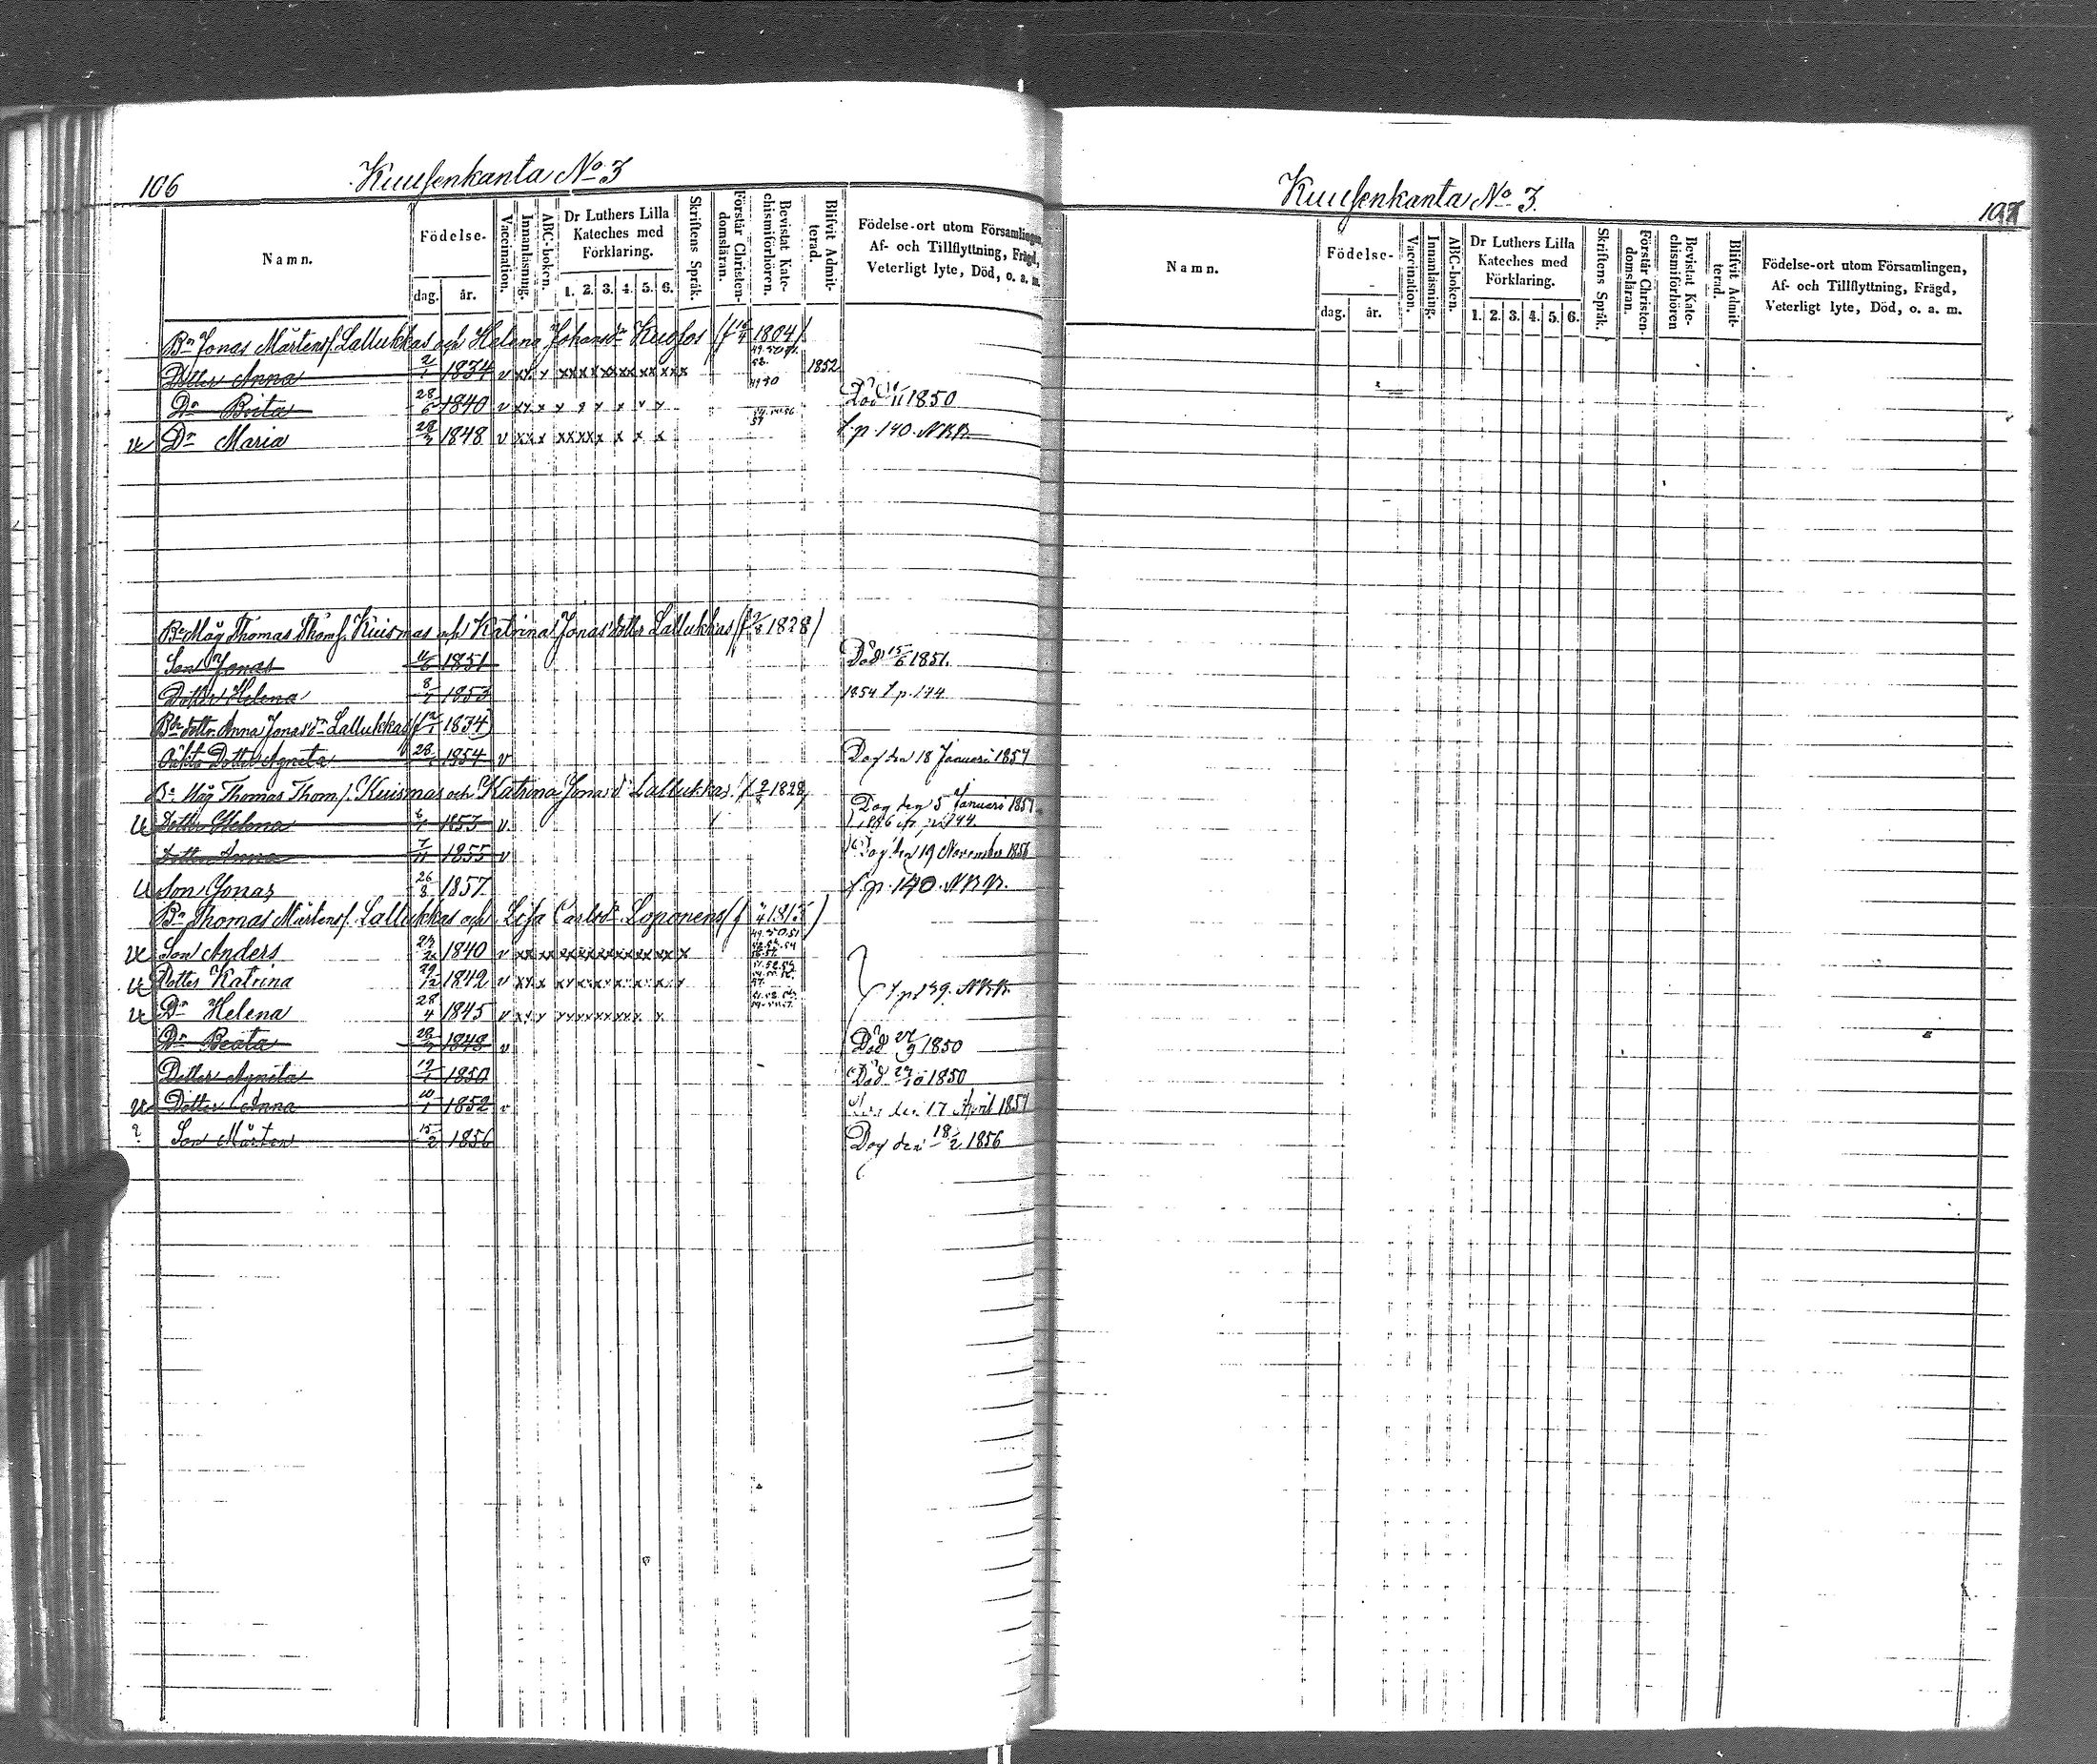 106
Kuusenkanta No 3
Namn.
Födelse-
dag.
år.
Vaccination.
Innanläsning.
ABC-boken.
Dr Luthers Lilla
Kateches med
Förklaring.
1. 2. 3. 4. 5. 6.
Skriftens Språk.
Förstår Christen-
domsläran.
Bevistat Kate-
chismiförhören.
Blifvit Admit-
terad.
Födelse-ort utom Församlingen,
Af- och Tillflyttning, Frägd,
Veterligt lyte, Död, o. a. m.
Bn Jonas Mårtens. Lallukkas och Helena Johansdr 1804
Dotter Anna 2/1 1834 v 1852
49.50
Dr Brita 28/6 1840 v Död 1850
Dr Maria 1848 v f. p. 140. NKB.
Bn Måg Thomas Thoms. Kuismas och Katrina Jonas dotter Lallukkas (f 2/8 1828)
Son Jonas 1851 Död 15/6 1851.
Dotter Helena 1853 1854 f p. 144
Bn dottr Anna Jonasdr Lallukkas (f 2/1 1834)
Oäkta Dotter Agneta 28 1854 v Dog den 18 Januari 1857
Bn Måg Thomas Thoms. Kuismas och Katrina Jonasdr Lallukkas. f 2/8 1828
Dog den 5 Januari 1857
Dotter Helena 1853 v
Dotter Anna 7/11 1855 v Dog den 19 November 1856
Son Jonas 26/8 1857 f. p. 140. NKB.
Bn Thomas Mårtens. Lallukkas och Lisa Carlsdr Loponens
Son Anders 1840 v
Dotter Katrina 29/12 1842 v
f. p. 139. NKB.
Dr Helena 28/4 1845 v
Dr Beata 1848 v Död 1850
Dotter Agneta 1850 Död 1850
Dotter Anna 10/1 1852 v den 17 April 1857
Son Mårten 15/2 1856 Dog den 18/2 1856
Kuusenkanta No 3.
107
Namn.
Födelse-
dag.
år.
Vaccination.
Innanläsning.
ABC-boken.
Dr Luthers Lilla
Kateches med
Förklaring.
1. 2. 3. 4. 5. 6.
Skriftens Språk.
Förstår Christen-
domsläran.
Bevistat Kate-
chismiförhören
Blifvit Admit-
terad.
Födelse-ort utom Församlingen,
Af- och Tillflyttning, Frägd,
Veterligt lyte, Död, o. a. m.